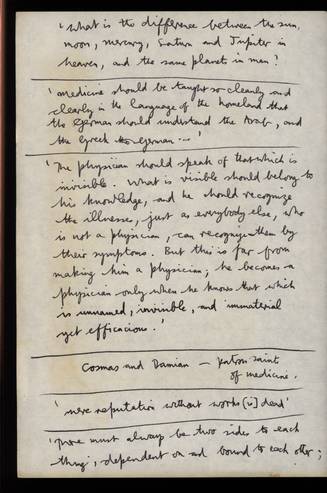 'What is the difference between the sun,
moon, mercury, Saturn and Jupiter in
heaven, and the same planets in man?
'medicine should be taught so clearly and
clearly in the language of the homeland that
the German should understand the Arab, and
the Greek the German ... '
'The physician should speak of that which is
invisible. What is visible should belong to
his knowledge, and he should recognize
the illnesses, just as everybody else, who
is not a physician, can recognize them by
their symptoms. But this is far from
making him a physician; he becomes a
physician only when he knows that which
is unnamed, invisible, and immaterial
yet efficacious.'
Cosmas and Damian — patron saints
of medicine.
'mere reputation without works [is] dead'
'There must always be two sides to each
thing, dependent on and bound to each other;